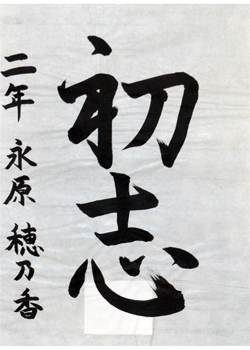 初志
二年 永原 穂乃香